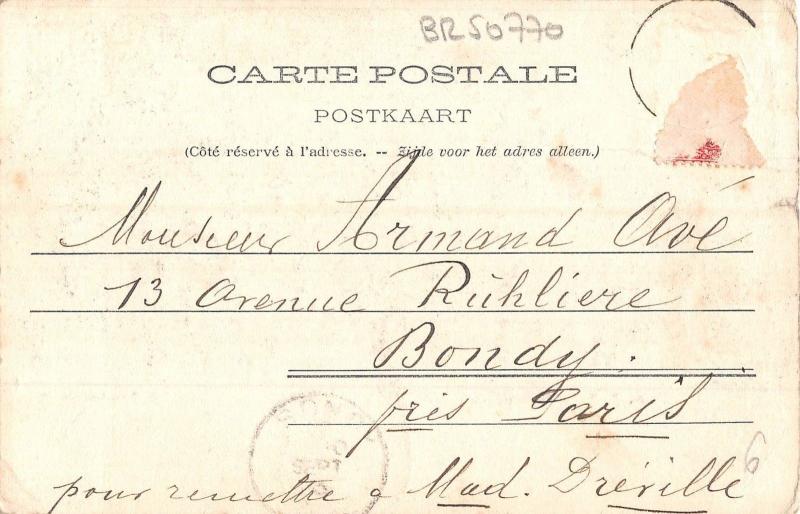 BR50770
CARTE POSTALE
POSTKAART
(Côté réservé à l'adresse. -- Zijde voor het adres alleen.)
Monsieur Armand Avé
13 Avenue Rühliere
Bondy.
près Paris
6
pour remettre à Mad. Dréville